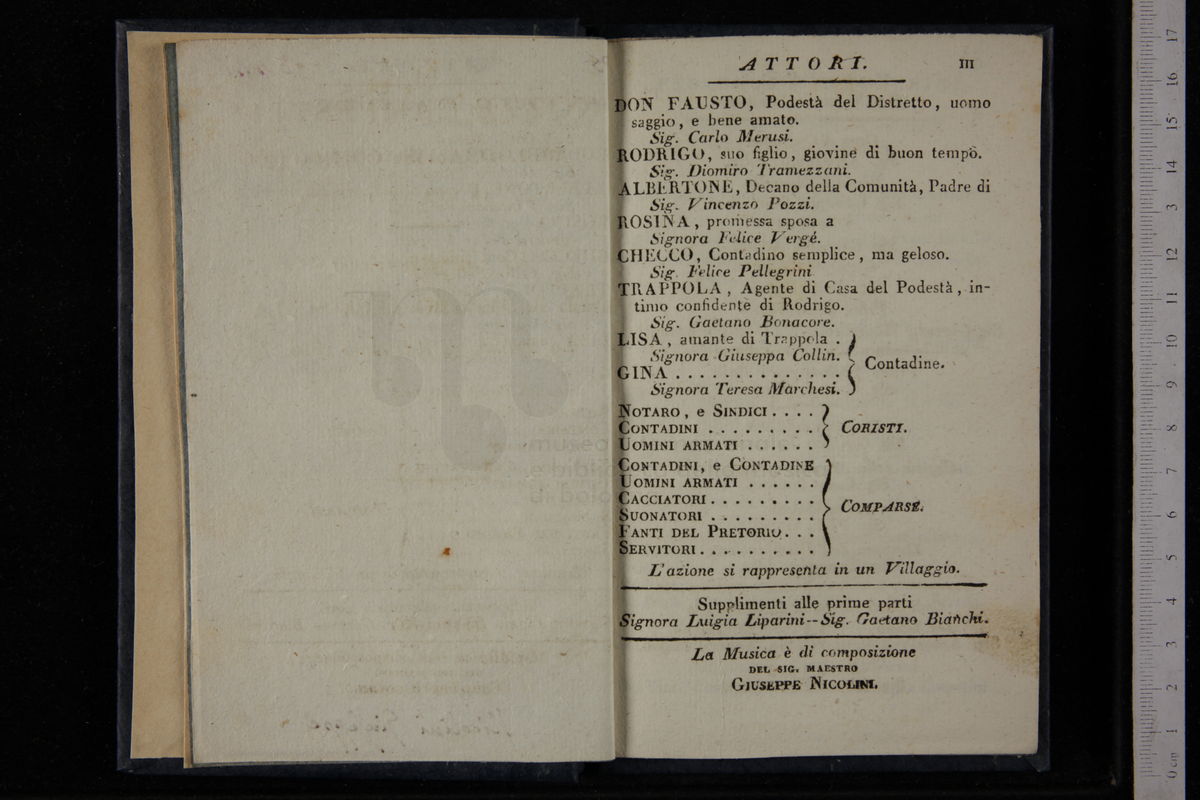 ATTORI. III
DON FAUSTO, Podestà del Distretto, uomo
saggio, e bene amato.
Sig. Carlo Merusi.
RODRIGO, suo figlio, giovine di buon tempo.
Sig. Diomiro Tramezzani.
ALBERTONE, Decano della Comunità, Padre di
Sig. Vincenzo Pozzi.
ROSINA, promessa sposa a
Signora Felice Vergé.
CHECCO, Contadino semplice, ma geloso.
Sig. Felice Pellegrini
TRAPPOLA, Agente di Casa del Podestà, in-
timo confidente di Rodrigo.
Sig. Gaetano Bonacore.
LISA, amante di Trappola .
Signora Giuseppa Collin.
Contadine.
GINA . . . . . . . . . . . . . .
Signora Teresa Marchesi.
NOTARO, e SINDICI . . . .
CONTADINI . . . . . . . . . CORISTI.
UOMINI ARMATI . . . . . .
CONTADINI, e CONTADINE
UOMINI ARMATI . . . . . .
CACCIATORI . . . . . . . . .
COMPARSE.
SUONATORI . . . . . . . . .
FANTI DEL PRETORIO. . .
SERVITORI . . . . . . . . . .
L'azione si rappresenta in un Villaggio.
Supplimenti alle prime parti
Signora Luigia Liparini--Sig. Gaetano Bianchi.
La Musica è di composizione
DEL SIG. MAESTRO
GIUSEPPE NICOLINI.
museo
e bibli
di bolo
0 cm 1 2 3 4 5 6 7 8 9 10 11 12 3 14 15 16 17